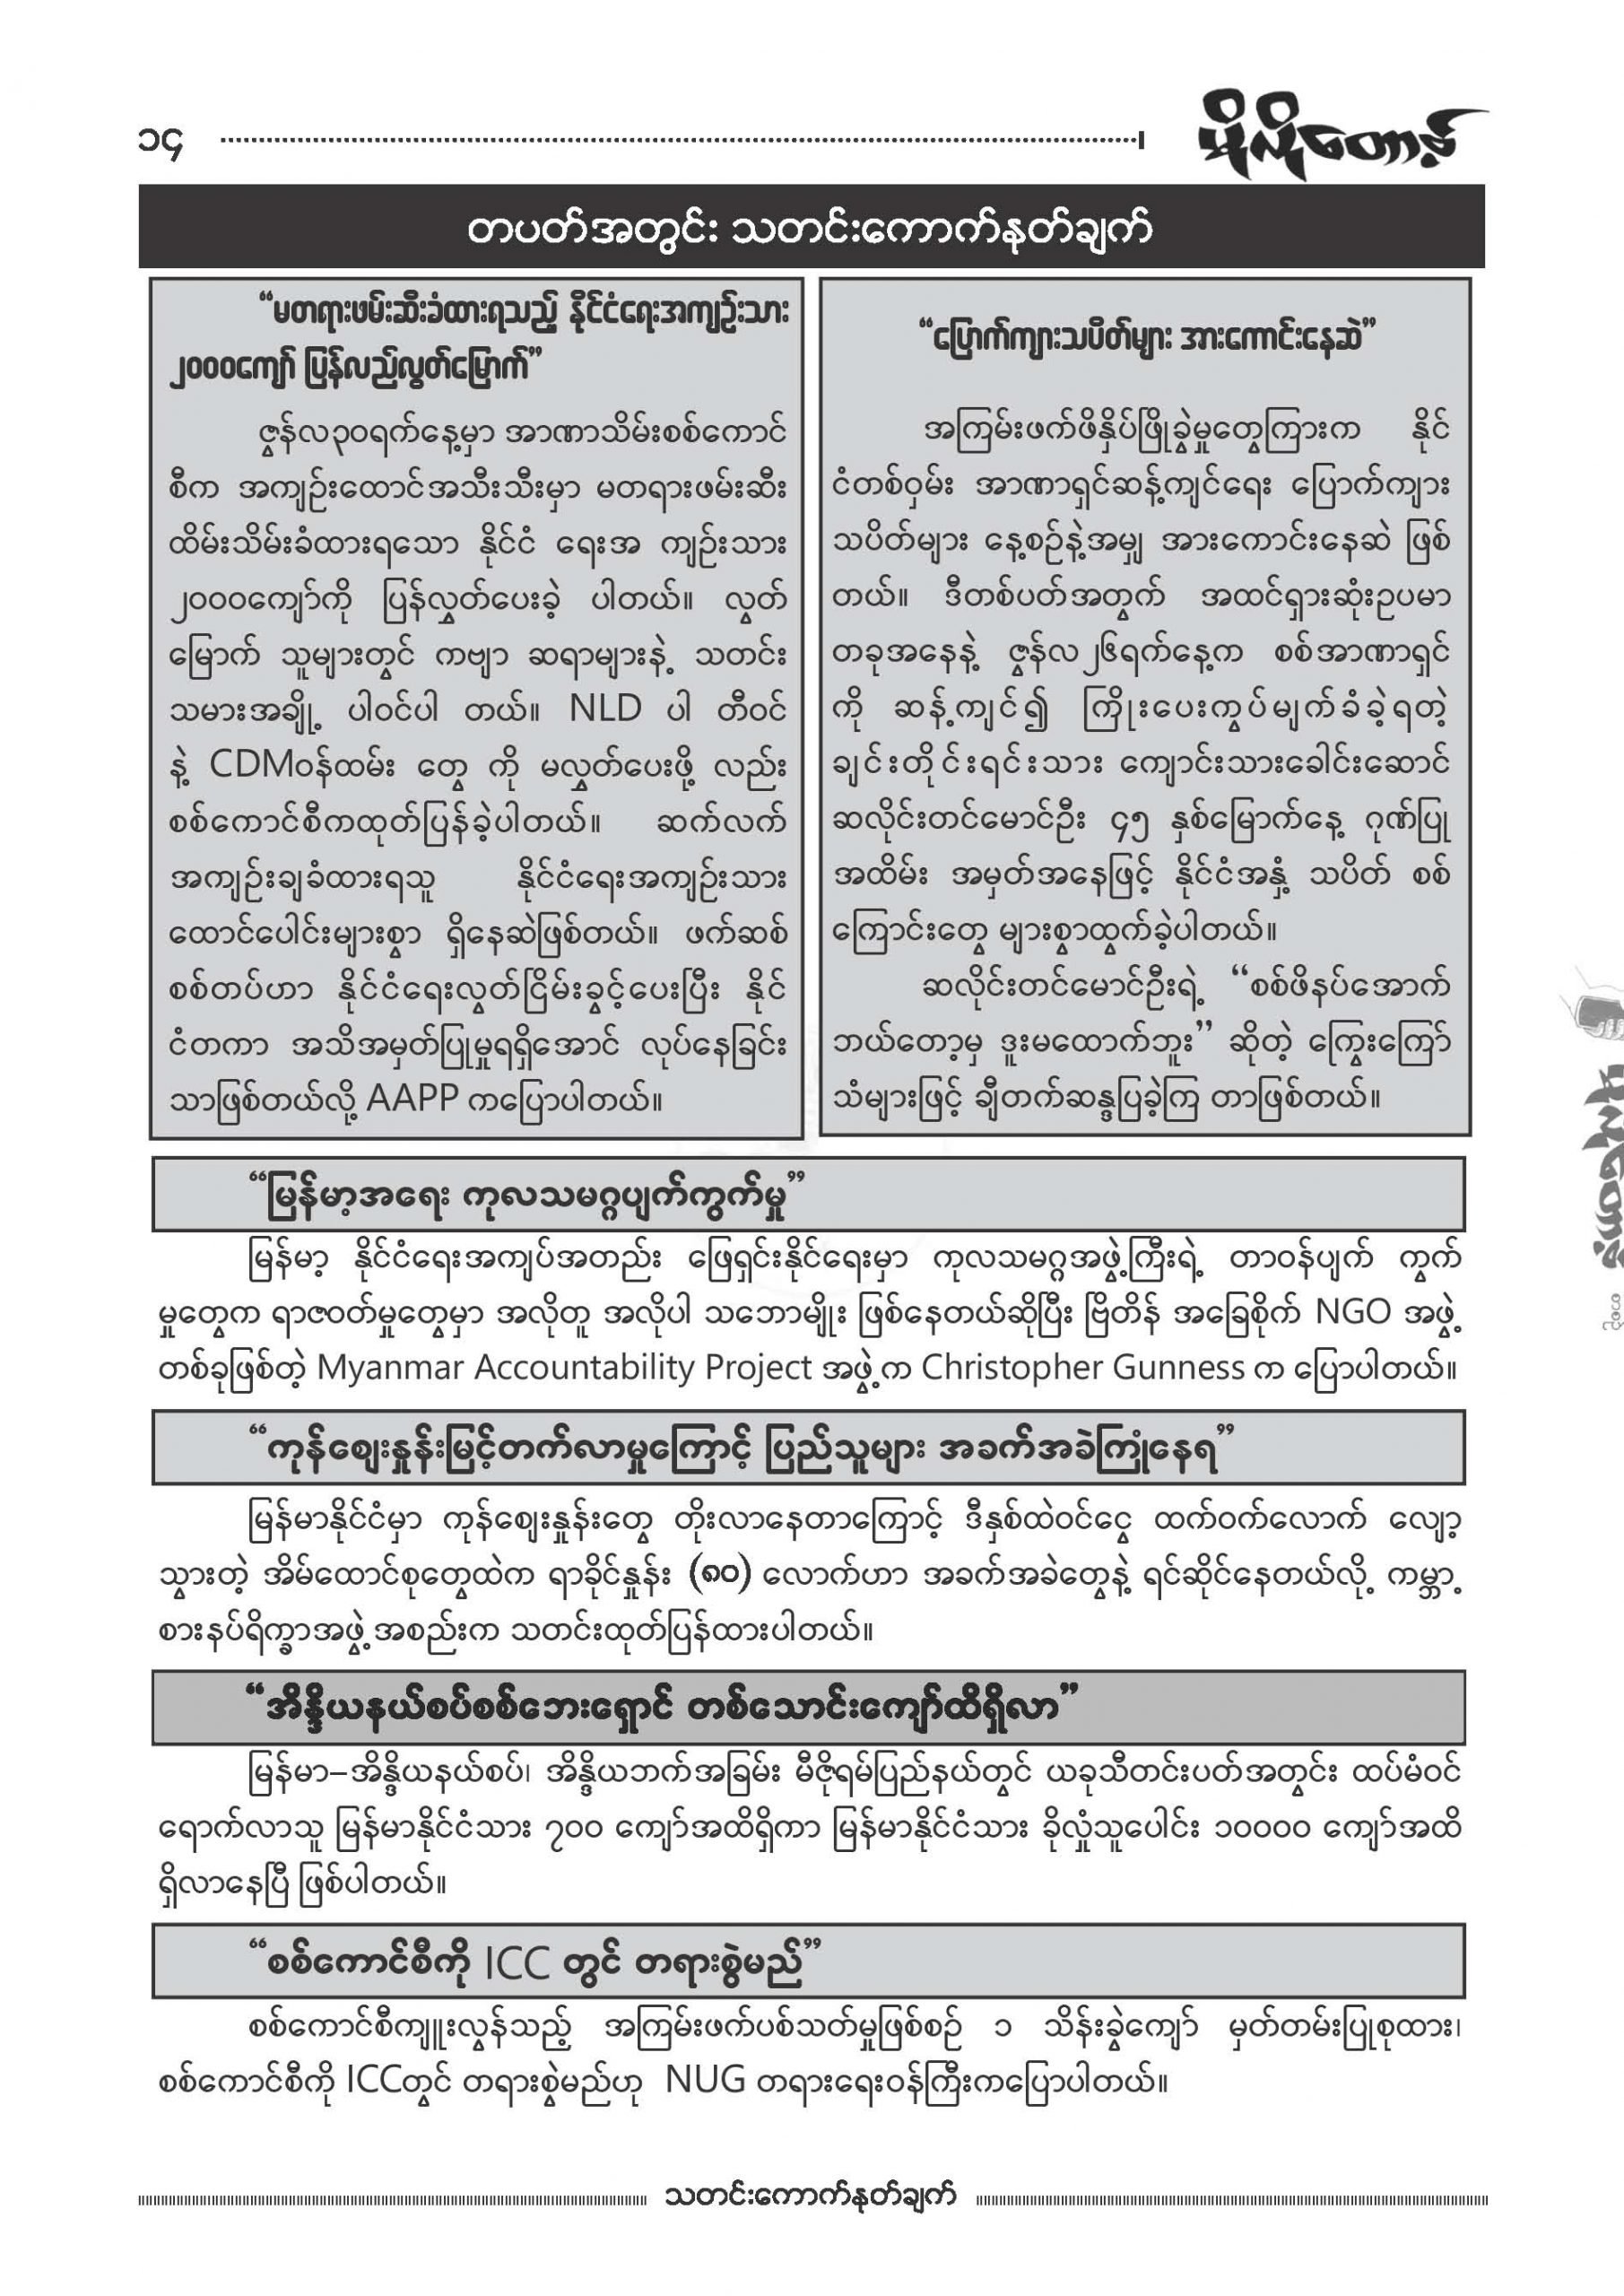 ၁၄
မိုလိုတော့န်
တပတ်အတွင်း သတင်းကောက်နုတ်ချက်
“မတရားဖမ်းဆီးခံထားရသည့် နိုင်ငံရေးအကျဉ်းသား
၂၀၀၀ကျော် ပြန်လည်လွတ်မြောက်”
ဇွန်လ၃၀ရက်နေ့မှာ အာဏာသိမ်းစစ်ကောင်
စီက အကျဉ်းထောင်အသီးသီးမှာ မတရားဖမ်းဆီး
ထိမ်းသိမ်းခံထားရသော နိုင်ငံ ရေးအ ကျဉ်းသား
၂၀၀၀ကျော်ကို ပြန်လွှတ်ပေးခဲ့ ပါတယ်။ လွတ်
မြောက် သူများတွင် ကဗျာ ဆရာများနဲ့ သတင်း
သမားအချို့ ပါဝင်ပါ တယ်။ NLD ပါ တီဝင်
နဲ့ CDMဝန်ထမ်း တွေ ကို မလွှတ်ပေးဖို့ လည်း
စစ်ကောင်စီကထုတ်ပြန်ခဲ့ပါတယ်။ ဆက်လက်
အကျဉ်းချခံထားရသူ နိုင်ငံရေးအကျဉ်းသား
ထောင်ပေါင်းများစွာ ရှိနေဆဲဖြစ်တယ်။ ဖက်ဆစ်
စစ်တပ်ဟာ နိုင်ငံရေးလွတ်ငြိမ်းခွင့်ပေးပြီး နိုင်
ငံတကာ အသိအမှတ်ပြုမှုရရှိအောင် လုပ်နေခြင်း
သာဖြစ်တယ်လို့ AAPP ကပြောပါတယ်။
“ပြောက်ကျားသပိတ်များ အားကောင်းနေဆဲ”
အကြမ်းဖက်ဖိနှိပ်ဖြိုခွဲမှုတွေကြားက နိုင်
ငံတစ်ဝှမ်း အာဏာရှင်ဆန့်ကျင်ရေး ပြောက်ကျား
သပိတ်များ နေ့စဉ်နဲ့အမျှ အားကောင်းနေဆဲ ဖြစ်
တယ်။ ဒီတစ်ပတ်အတွက် အထင်ရှားဆုံးဥပမာ
တခုအနေနဲ့ ဇွန်လ၂၆ရက်နေ့က စစ်အာဏာရှင်
ကို ဆန့်ကျင်၍ ကြိုးပေးကွပ်မျက်ခံခဲ့ရတဲ့
ချင်းတိုင်းရင်းသား ကျောင်းသားခေါင်းဆောင်
ဆလိုင်းတင်မောင်ဦး ၄၅ နှစ်မြောက်နေ့ ဂုဏ်ပြု
အထိမ်း အမှတ်အနေဖြင့် နိုင်ငံအနှံ့ သပိတ် စစ်
ကြောင်းတွေ များစွာထွက်ခဲ့ပါတယ်။
ဆလိုင်းတင်မောင်ဦးရဲ့ “စစ်ဖိနပ်အောက်
ဘယ်တော့မှ ဒူးမထောက်ဘူး” ဆိုတဲ့ ကြွေးကြော်
သံများဖြင့် ချီတက်ဆန္ဒပြခဲ့ကြ တာဖြစ်တယ်။
“မြန်မာ့အရေး ကုလသမဂ္ဂပျက်ကွက်မှု”
မြန်မာ့ နိုင်ငံရေးအကျပ်အတည်း ဖြေရှင်းနိုင်ရေးမှာ ကုလသမဂ္ဂအဖွဲ့ကြီးရဲ့ တာဝန်ပျက် ကွက်
မှုတွေက ရာဇဝတ်မှုတွေမှာ အလိုတူ အလိုပါ သဘောမျိုး ဖြစ်နေတယ်ဆိုပြီး ဗြိတိန် အခြေစိုက် NGO အဖွဲ့
တစ်ခုဖြစ်တဲ့ Myanmar Accountability Project အဖွဲ့က Christopher Gunness က ပြောပါတယ်။
“ကုန်စျေးနှုန်းမြင့်တက်လာမှုကြောင့် ပြည်သူများ အခက်အခဲကြုံနေရ”
မြန်မာနိုင်ငံမှာ ကုန်စျေးနှုန်းတွေ တိုးလာနေတာကြောင့် ဒီနှစ်ထဲဝင်ငွေ ထက်ဝက်လောက် လျော့
သွားတဲ့ အိမ်ထောင်စုတွေထဲက ရာခိုင်နှုန်း (၈၀) လောက်ဟာ အခက်အခဲတွေနဲ့ ရင်ဆိုင်နေတယ်လို့ ကမ္ဘာ့
စားနပ်ရိက္ခာအဖွဲ့အစည်းက သတင်းထုတ်ပြန်ထားပါတယ်။
“အိန္ဒိယနယ်စပ်စစ်ဘေးရှောင် တစ်သောင်းကျော်ထိရှိလာ”
မြန်မာ–အိန္ဒိယနယ်စပ်၊ အိန္ဒိယဘက်အခြမ်း မီဇိုရမ်ပြည်နယ်တွင် ယခုသီတင်းပတ်အတွင်း ထပ်မံဝင်
ရောက်လာသူ မြန်မာနိုင်ငံသား ၇၀၀ ကျော်အထိရှိကာ မြန်မာနိုင်ငံသား ခိုလှုံသူပေါင်း ၁၀၀၀၀ ကျော်အထိ
ရှိလာနေပြီ ဖြစ်ပါတယ်။
“စစ်ကောင်စီကို ICC တွင် တရားစွဲမည်”
စစ်ကောင်စီကျူးလွန်သည့် အကြမ်းဖက်ပစ်သတ်မှုဖြစ်စဉ် ၁ သိန်းခွဲကျော် မှတ်တမ်းပြုစုထား၊
စစ်ကောင်စီကို ICCတွင် တရားစွဲမည်ဟု NUG တရားရေးဝန်ကြီးကပြောပါတယ်။
သတင်းကောက်နုတ်ချက်